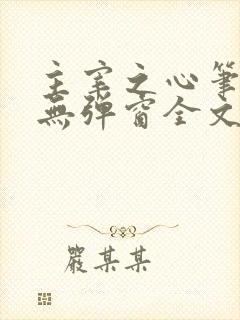 主宰之心筆
無彈窗全文
嚴某某